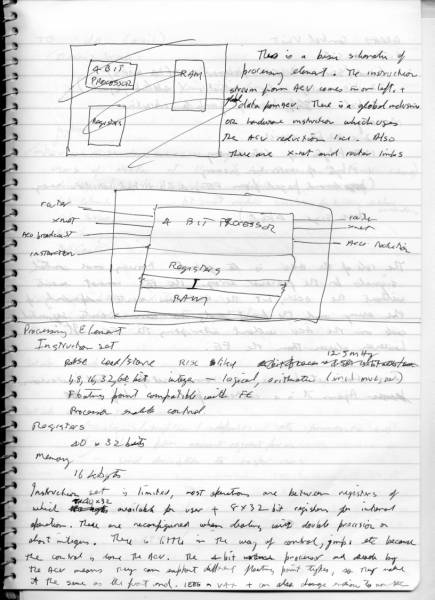 4 BIT
PROCESSOR
RAM
Registers
This is a basic schematic of
processing element. The instruction
stream from ACU comes in on left, +
data from ACU. There is a global inclusive
OR hardware instruction which uses
the ACU reduction line. Also
there are x-net and router links
router
xnet
ACU broadcast
instruction
4 BIT PROCESSOR
router
xnet
ACU reduction
Registers
RAM
Processing Element
Instruction set
Load/store RISC like 12.5 MHz
1,8,16,32,64 bit integer - logical, arithmetic (incl mul,
Floating point compatible with FE
Processor enable control
Registers
40 x 32 bits
Memory
16 kbytes
Instruction set is limited, most operations are between registers of
which 40x32 available for user + 8x32 bit registers for internal
operation. These are reconfigured when dealing with double precision or
short integers. There is little in the way of control, jumps etc because
the control is done the ACU. The 4 bit processor and
the ACU means they can support different floating point types, so they make
it the same as the front end. IEEE or VAX + can also change